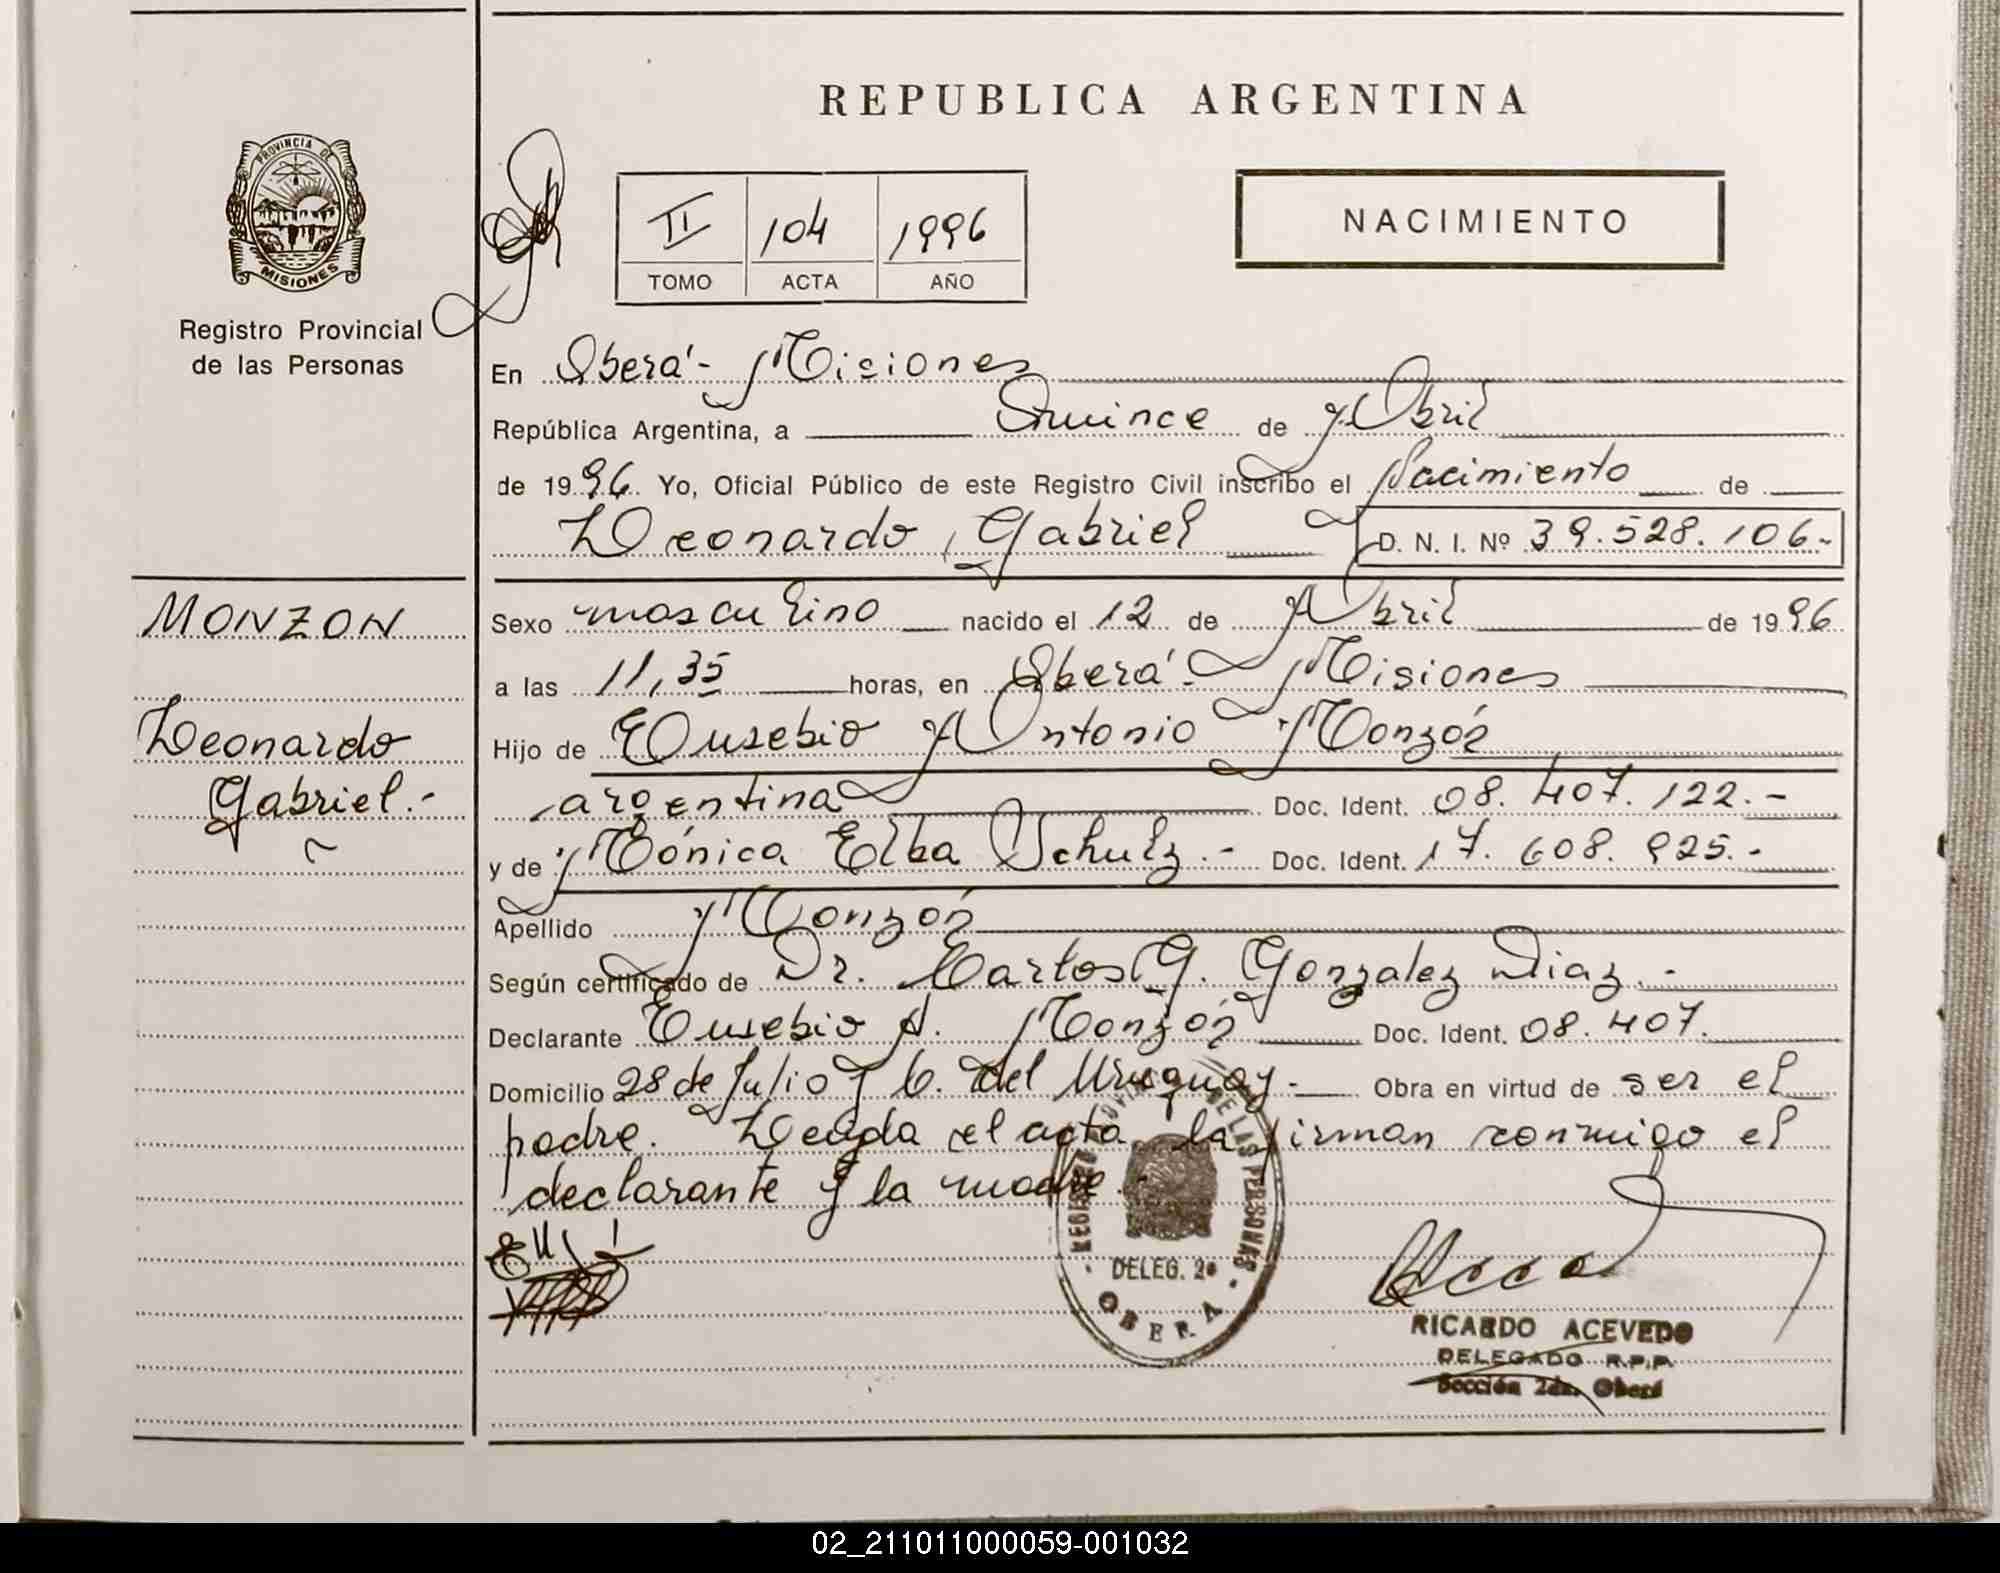 REPUBLICA ARGENTINA
PROVINCIA DE
MISIONES
Registro Provincial
de las Personas
II 104 1996
TOMO ACTA AÑO
NACIMIENTO
En Oberá - Misiones
República Argentina, a Quince de Abril
de 1996 Yo, Oficial Público de este Registro Civil inscribo el Nacimiento de
Leonardo Gabriel D. N. I. Nº 39.528.106.-
MONZON
Leonardo
Gabriel.-
Sexo masculino nacido el 12 de Abril de 1996
a las 11,35 horas, en Oberá - Misiones
Hijo de Eusebio Antonio Monzón
argentina Doc. Ident. 08.407.122.-
y de Mónica Elba Schulz.- Doc. Ident. 17.608.925.-
Apellido Monzón
Según certificado de Dr. Carlos G. Gonzalez Diaz.-
Declarante Eusebio A. Monzón Doc. Ident. 08.407.
Domicilio 28 de Julio y C. del Uruguay.- Obra en virtud de ser el
padre. Leida el acta la firman conmigo el
declarante y la madre.-
REGISTRO PROVINCIAL DE LAS PERSONAS
DELEG. 2a
OBERA
RICARDO ACEVEDO
DELEGADO R.P.P.
Sección 2da. Oberá
02_211011000059-001032